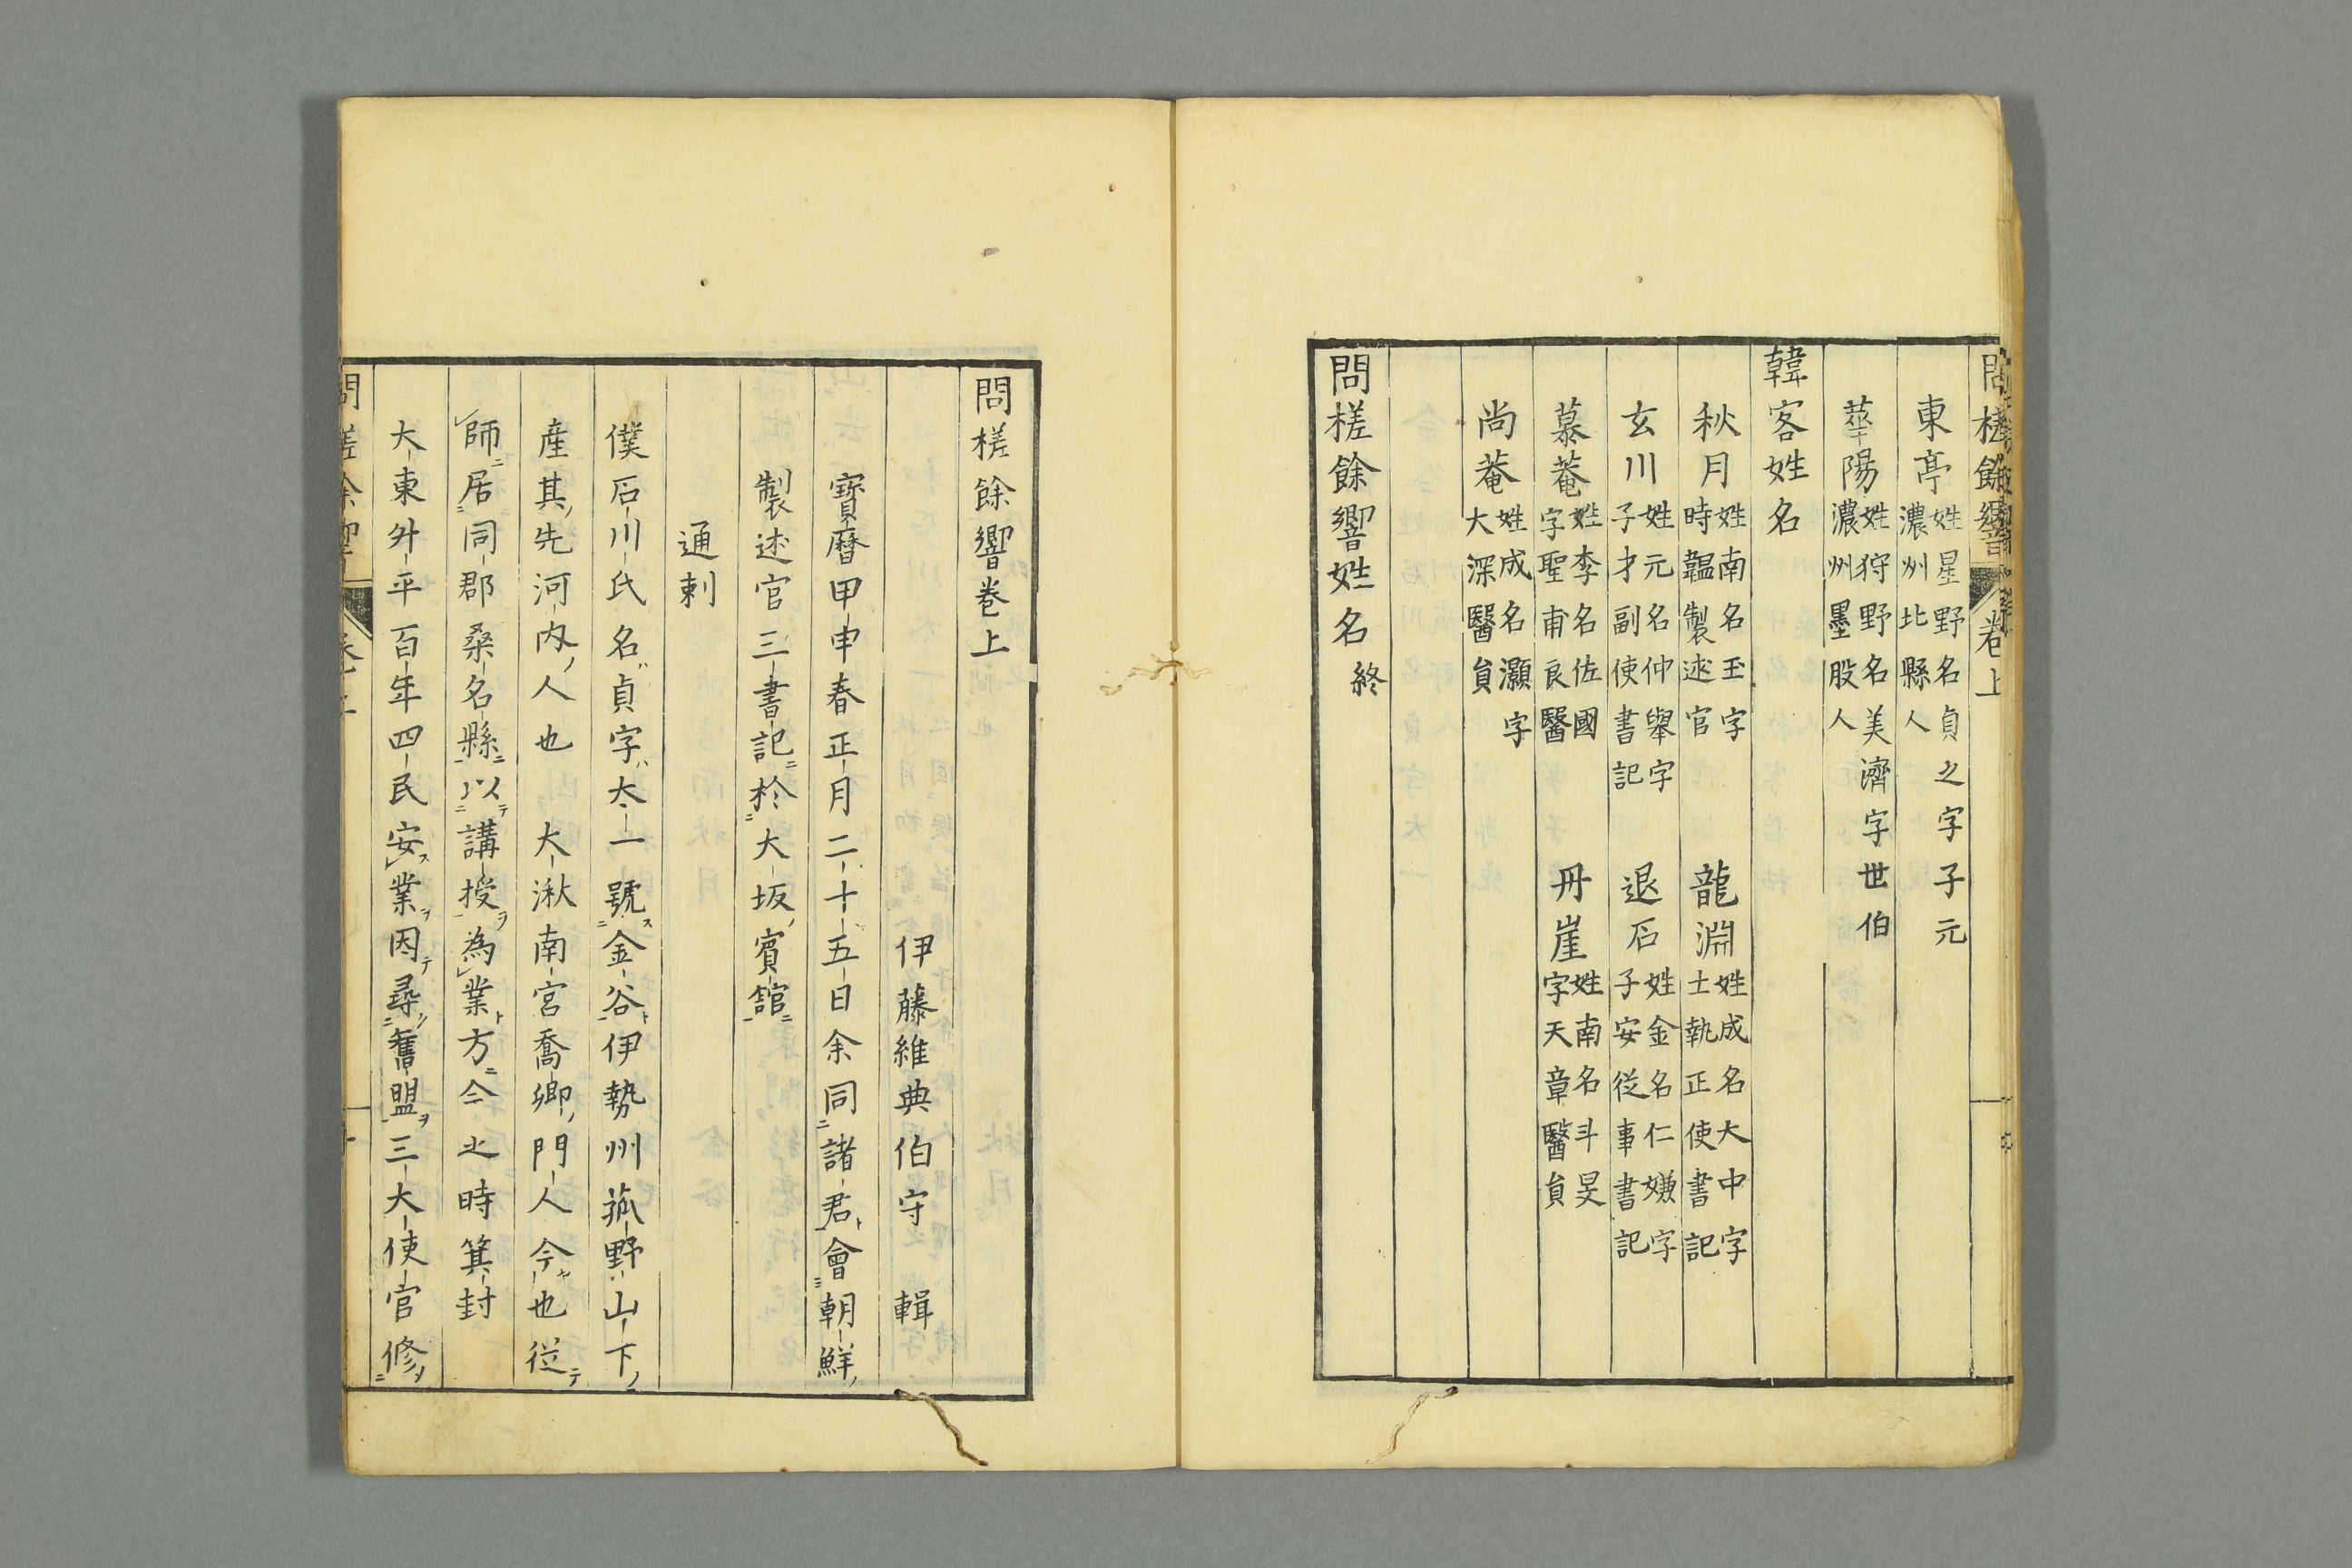 東亭 姓星野名貞之字子元
濃州北縣人
華陽 姓狩野名美濟字世伯
濃州墨股人
韓客姓名
秋月 姓南名玉字
時韞製述官
龍淵 姓成名大中字
士執正使書記
玄川 姓元名仲舉字
子才副使書記
退石 姓金名仁嫌字
子安從事書記
慕菴 姓李名佐國
字聖甫良醫
丹崖 姓南名斗旻
字天章醫員
尚菴 姓成名灝字
大深醫員
問槎餘響姓名 終
問槎餘響卷上
伊藤維典伯守 輯
寶曆甲申春正月二十五日余同諸君會朝鮮
製述官三書記於大坂賓館
通刺
僕石川氏名貞字太一號金谷伊勢州菰野山下
産其先河內人也 大湫南宮喬卿門人今也從
師居同郡桑名縣以講授為業方今之時箕封
大東升平百年四民安業因尋舊盟三大使官修